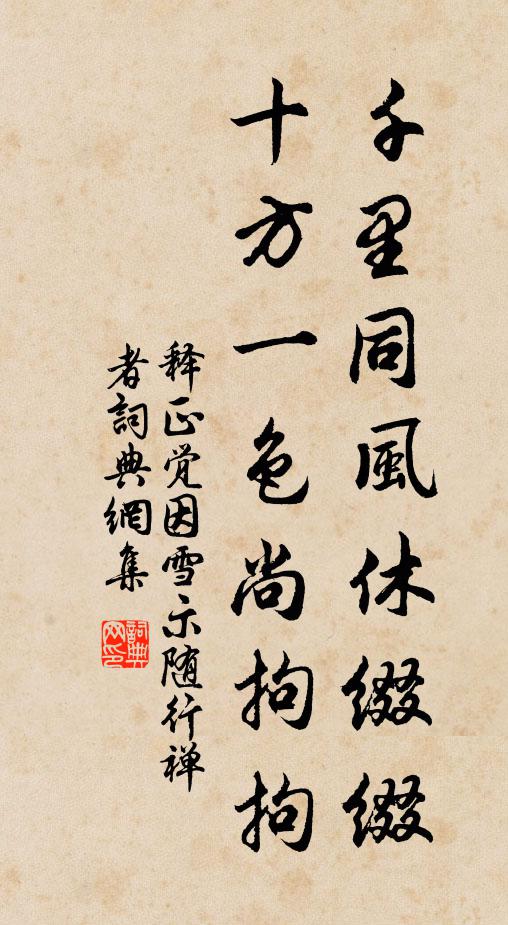 千里同風休缀缀
十方一色尚拘拘
释正觉因雪示随行禅
者詞典網集
詞典
网印